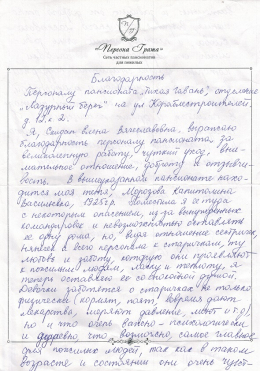 «Перспектива»
Сеть частных пансионатов
для пожилых
Благодарность
Персоналу пансионата „Тихая гавань", отделение
„Лазурный берег" на ул. Кораблестроителей,
д.
Я, Елена Вячеславовна, выражаю
благодарность персоналу пансионата за
великолепную работу, чуткий уход, вни-
мательное отношение, доброту и отзывчи-
вость. В вышеуказанном пансионате нахо-
дится моя тётя, Морозова Капитолина
Васильевна, 1925г.р. Поместила я её туда
с некоторым опасением, из-за вынужденных
командировок и невозможности оставлять
её одну дома, но, видя отношение сестричек,
нянечек и всего персонала к старичкам, ту
любовь и заботу, которую они проявляют
к пожилым людям, ласку и теплоту, я
теперь оставляю её со спокойной душой.
Девочки заботятся о старичках не только
физически (кормят, поят, вовремя дают
лекарства, меряют давление, моют и т.д.)
но и что очень важно - психологически
и душевно, что, возможно, самое главное
для пожилых людей, так как в таком
возрасте и состоянии они очень чувст-